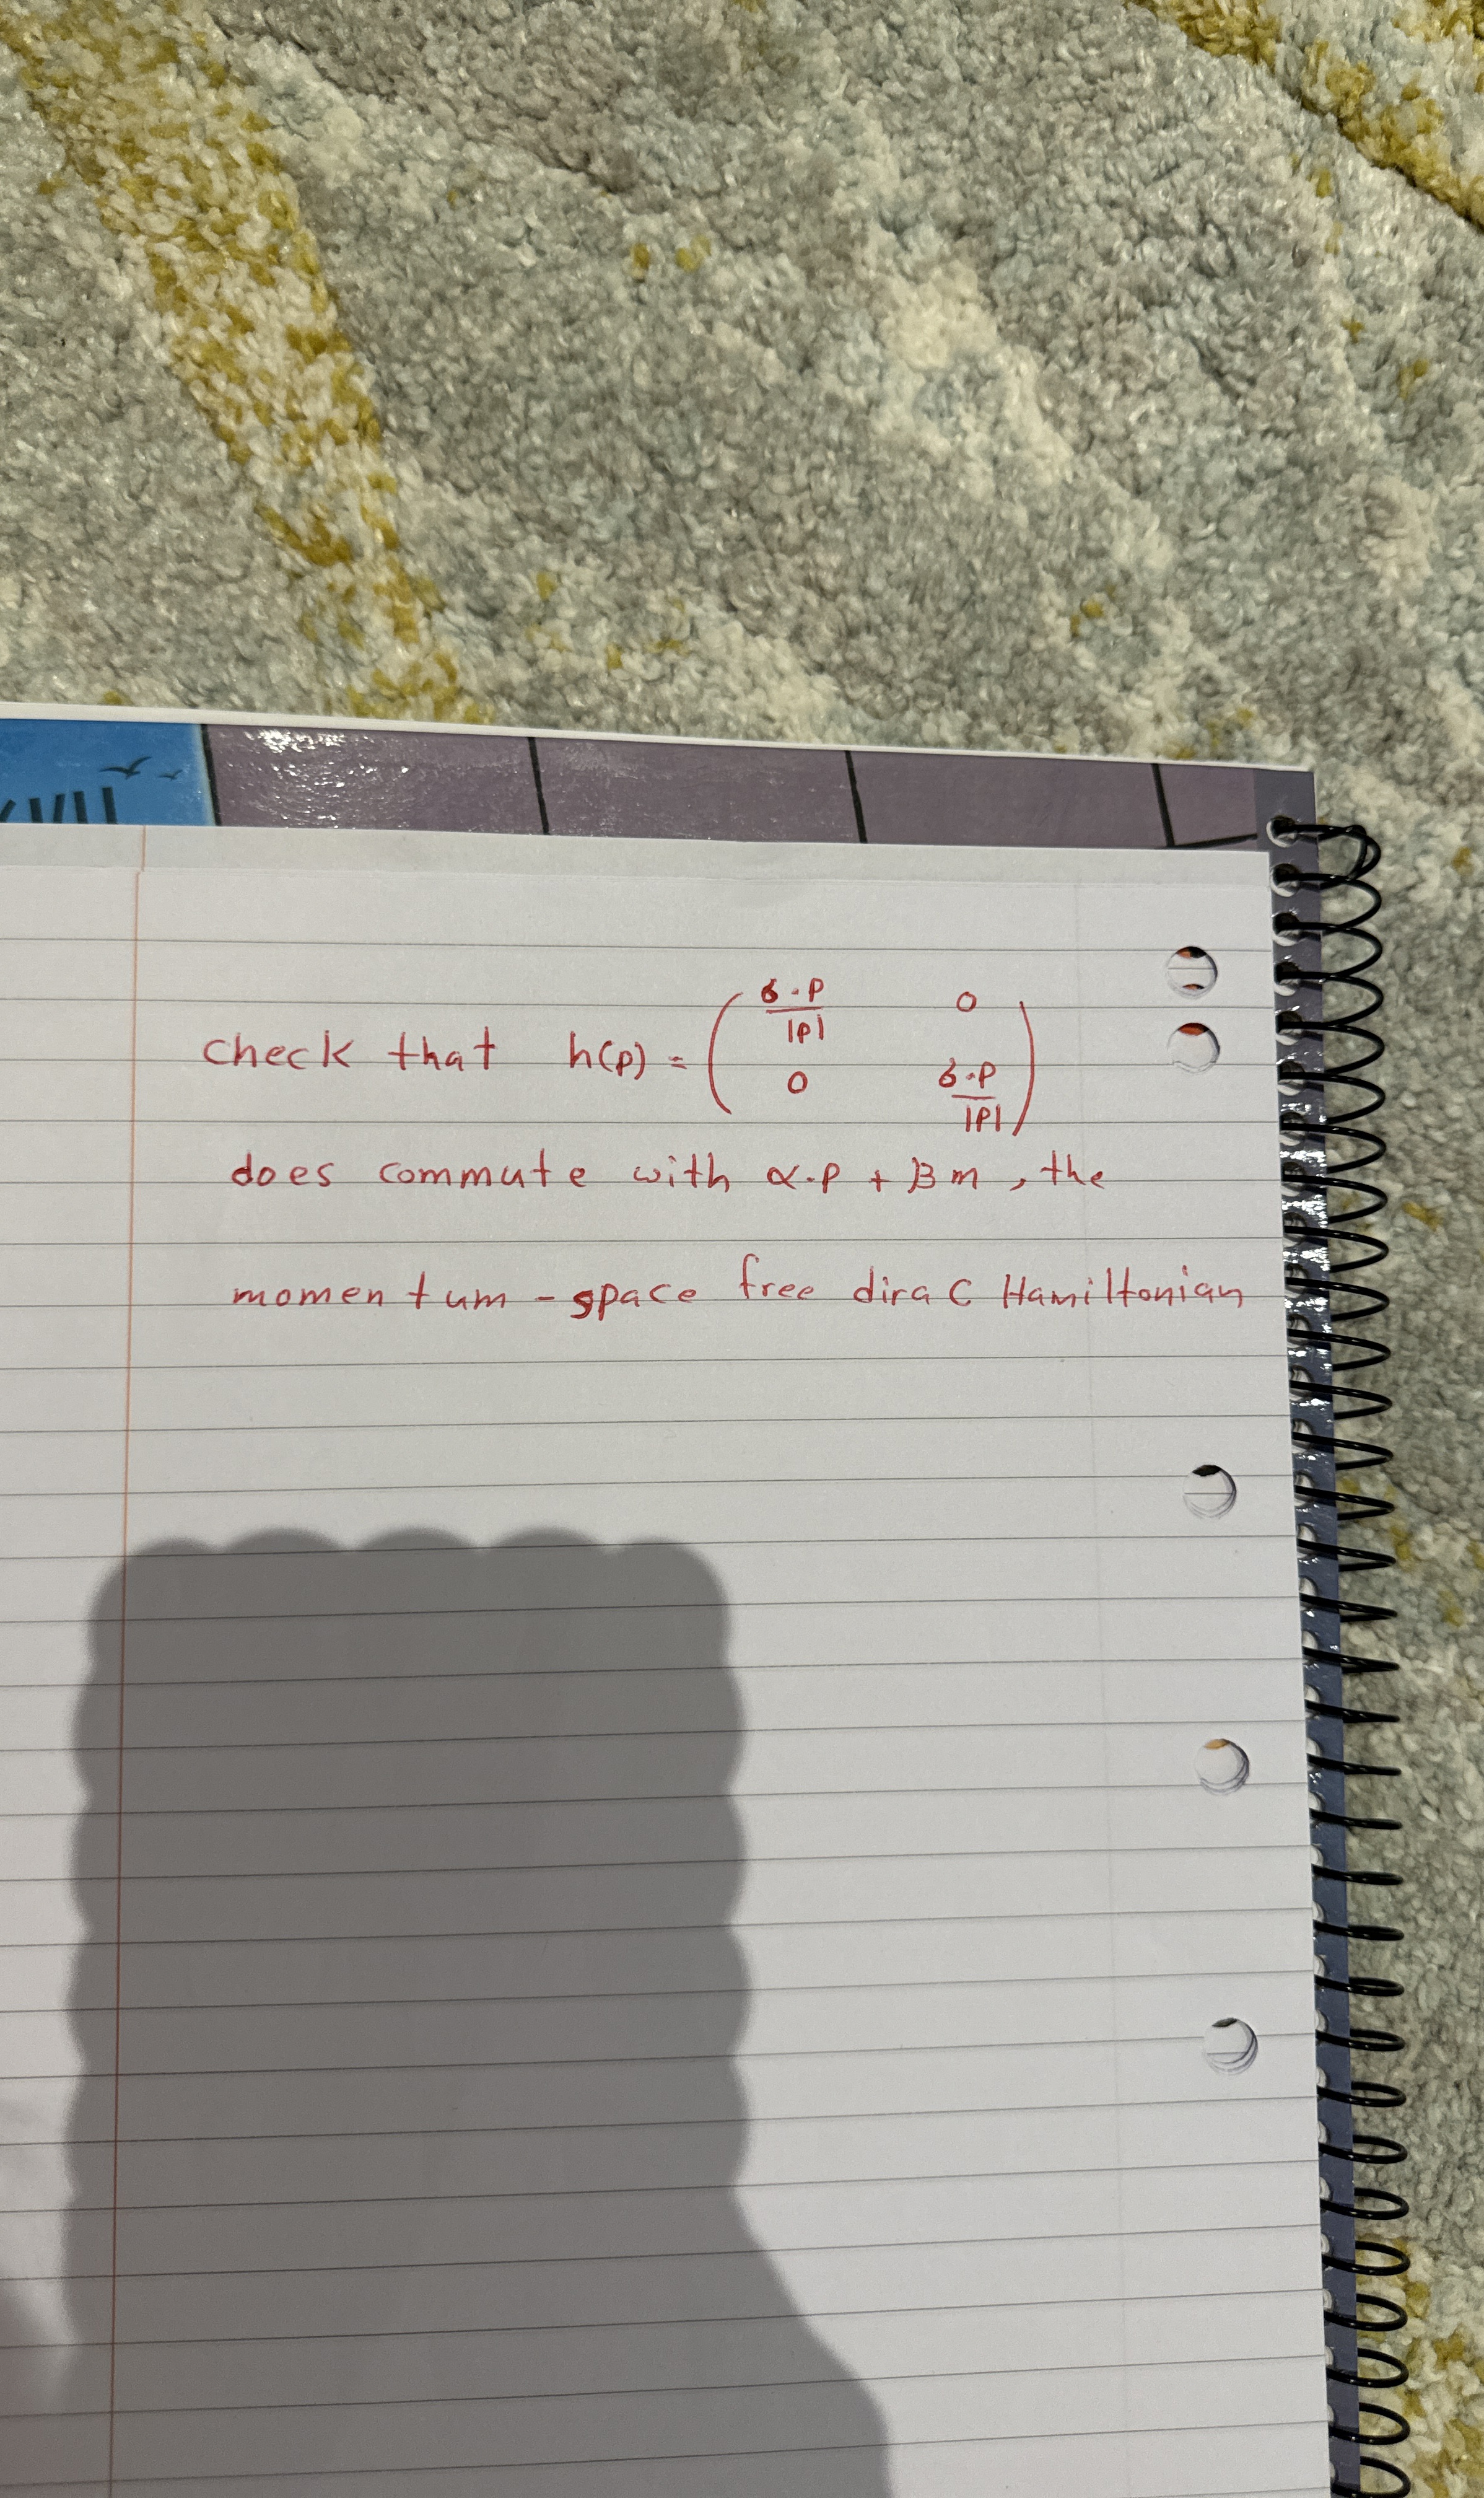 check that h(p) = ( σ·p/|p| 0
0 σ·p/|p| )
does commute with α·p + βm, the
momentum-space free dirac Hamiltonian